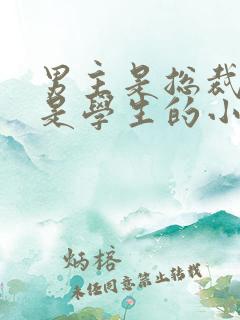 男主是总裁
是學生的小
炳榕
未经同意禁止转载